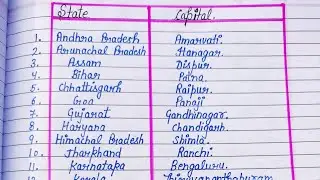 State Capital.
1. Andhra Pradesh Amarvati.
2. Arunachal Pradesh Itanagar.
3. Assam Dispur.
4. Bihar Patna.
5. Chhattisgarh Raipur.
6. Goa Panaji
7. Gujarat Gandhinagar.
8. Haryana Chandigarh.
9. Himachal Pradesh Shimla.
10. Jharkhand Ranchi.
11. Karnataka Bengaluru.
12. Kerala Thiruvananthapuram